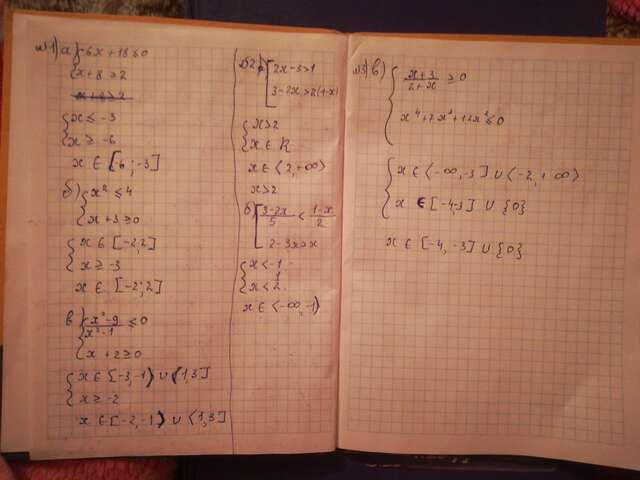 №1) а) {-6x+18≤0
{x+8≥2
{x≤-3
x≥-6
x∈[-6;-3]
б) {x²≤4
x+3≥0
{x∈[-2,2]
x≥-3
x∈[-2;2]
в) {x²-9/x²-1 ≤0
x+2≥0
{x∈[-3,-1)∪(1,3]
x≥-2
x∈[-2,-1)∪(1,3]
№2) [2x-3>1
3-2x>2(1-x)
{x>2
x∈R
x∈(2,+∞)
x>2
б) [3-2x/5 < 1-x/2
2-3x>x
{x<-1
x<1/2
x∈(-∞,-1)
№3) в) {x+3/2+x ≥0
x⁴+7x³+12x²≤0
{x∈(-∞,-3]∪(-2,+∞)
x∈[-4,-3]∪{0}
x∈[-4,-3]∪{0}